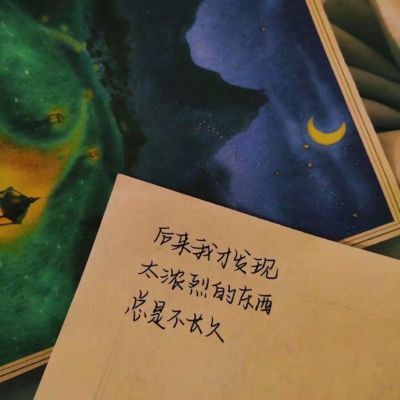 后来我才发现
太浓烈的东西
总是不长久